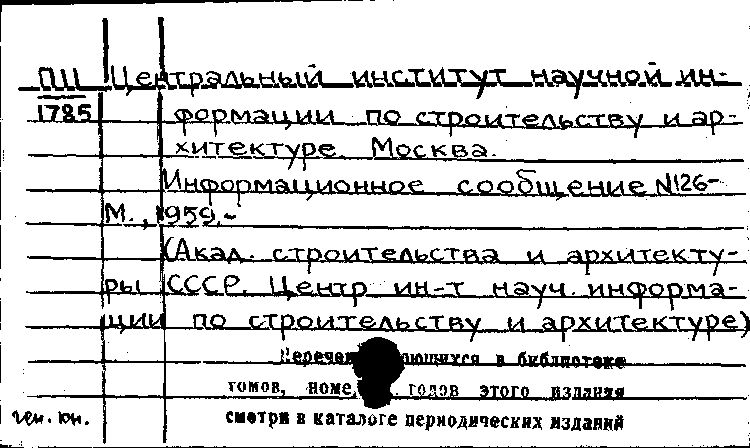 ПЦ Центральный институт научной ин-
1785 формации по строительству и ар-
хитектуре. Москва.
Информационное сообщение №126-
М., 1959.-
(Акад. строительства и архитекту-
ры СССР. Центр. ин-т науч. информа-
ции по строительству и архитектуре)
в библиотеке
томов, годов этого издания
ген. кн. смотри в каталоге периодических изданий